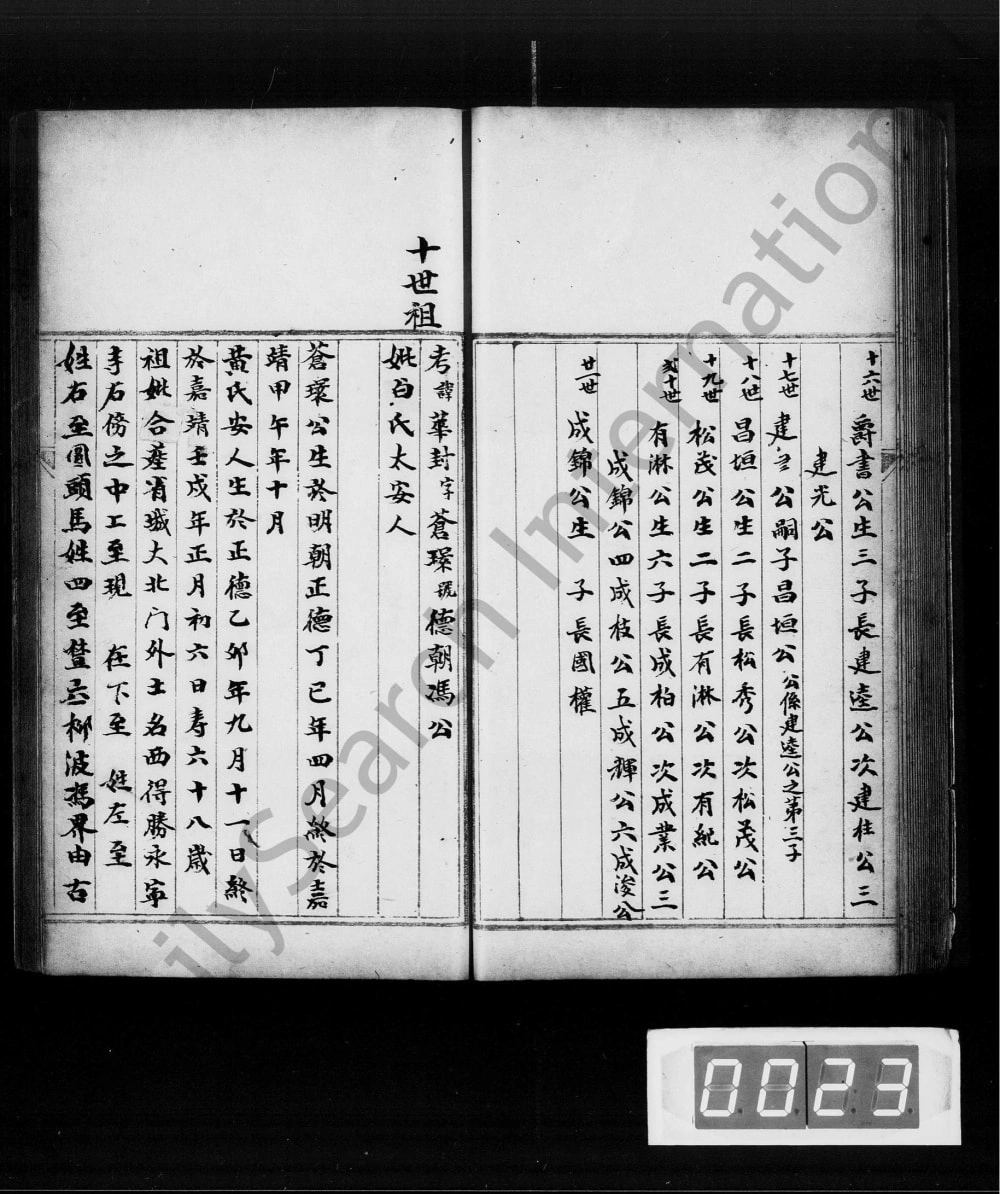 十六世 爵書公生三子長建逵公次建柱公三
建光公
十七世 建 公嗣子昌垣公 公係建逵公之第三子
十八世 昌垣公生二子長松秀公次松茂公
十九世 松茂公生二子長有淋公次有紀公
弍十世 有淋公生六子長成柏公次成業公三
成錦公四成枝公五成輝公六成浚公
廿一世 成錦公生 子長國權
十世祖
考諱華封字蒼環號德朝馮公
妣白氏太安人
蒼環公生於明朝正德丁巳年四月終於嘉
靖甲午年十月
黃氏安人生於正德乙卯年九月十一日終
於嘉靖壬戌年正月初六日壽六十八歲
祖妣合塟省城大北门外土名西得勝永寧
李右傍之中工至現 在下至 姓左至
姓右至圓頭馬姓四至 柳波馮界由古
0023
ilySearch Internation